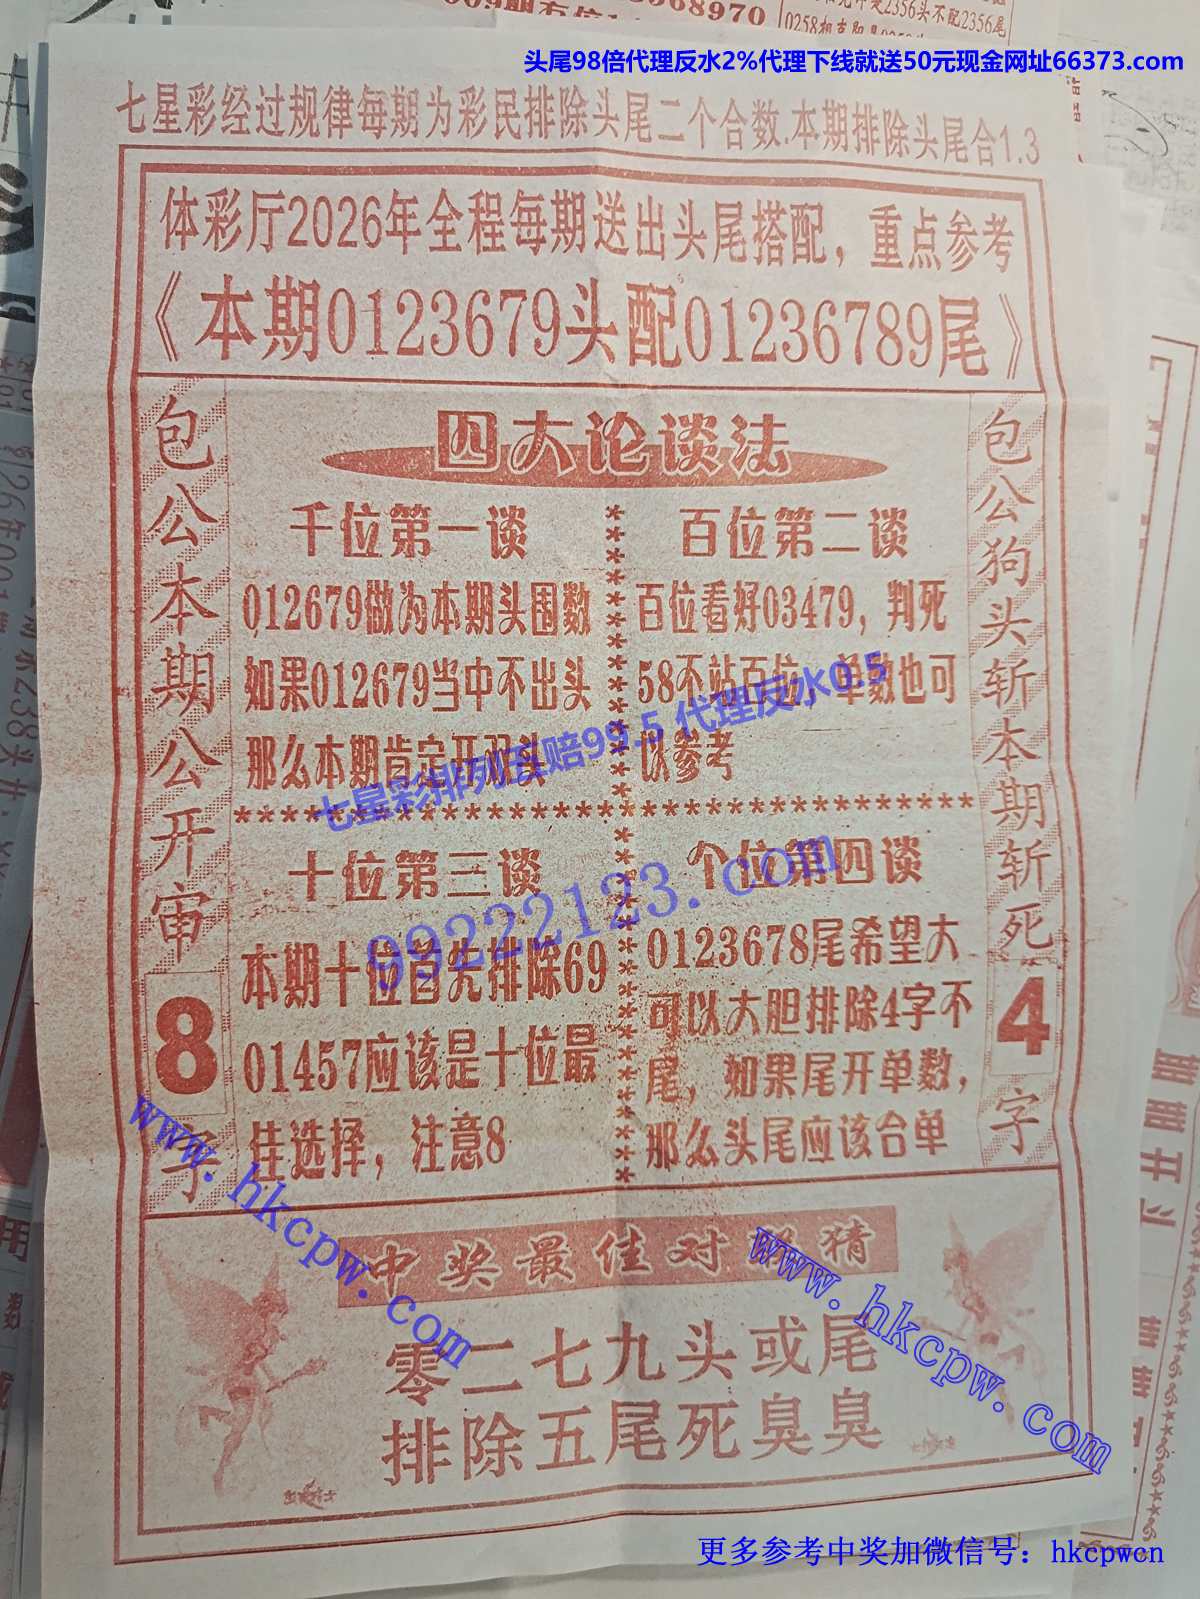 009期
68970
2356头不配2356尾
头尾98倍代理反水2%代理下线就送50元现金网址66373.com
七星彩经过规律每期为彩民排除头尾二个合数.本期排除头尾合1.3
体彩厅2026年全程每期送出头尾搭配，重点参考
《本期0123679头配01236789尾》
包公本期公开审
8
字
四大论谈法
千位第一谈
012679做为本期头围数
如果012679当中不出头
那么本期肯定开双头
百位第二谈
百位看好03479，判死
58不站百位，单数也可
以参考
七星彩排列五赔99.5 代理反水0.5
****************************************
十位第三谈
本期十位首先排除69
01457应该是十位最
佳选择，注意8
个位第四谈
0123678尾希望大
可以大胆排除4字不
尾，如果尾开单数，
那么头尾应该合单
99222123.com
包公狗头斩本期斩死
4
字
www.hkcpw.com
www.hkcpw.com
中奖最佳对联猜
零二七九头或尾
排除五尾死臭臭
更多参考中奖加微信号：hkcpwcn